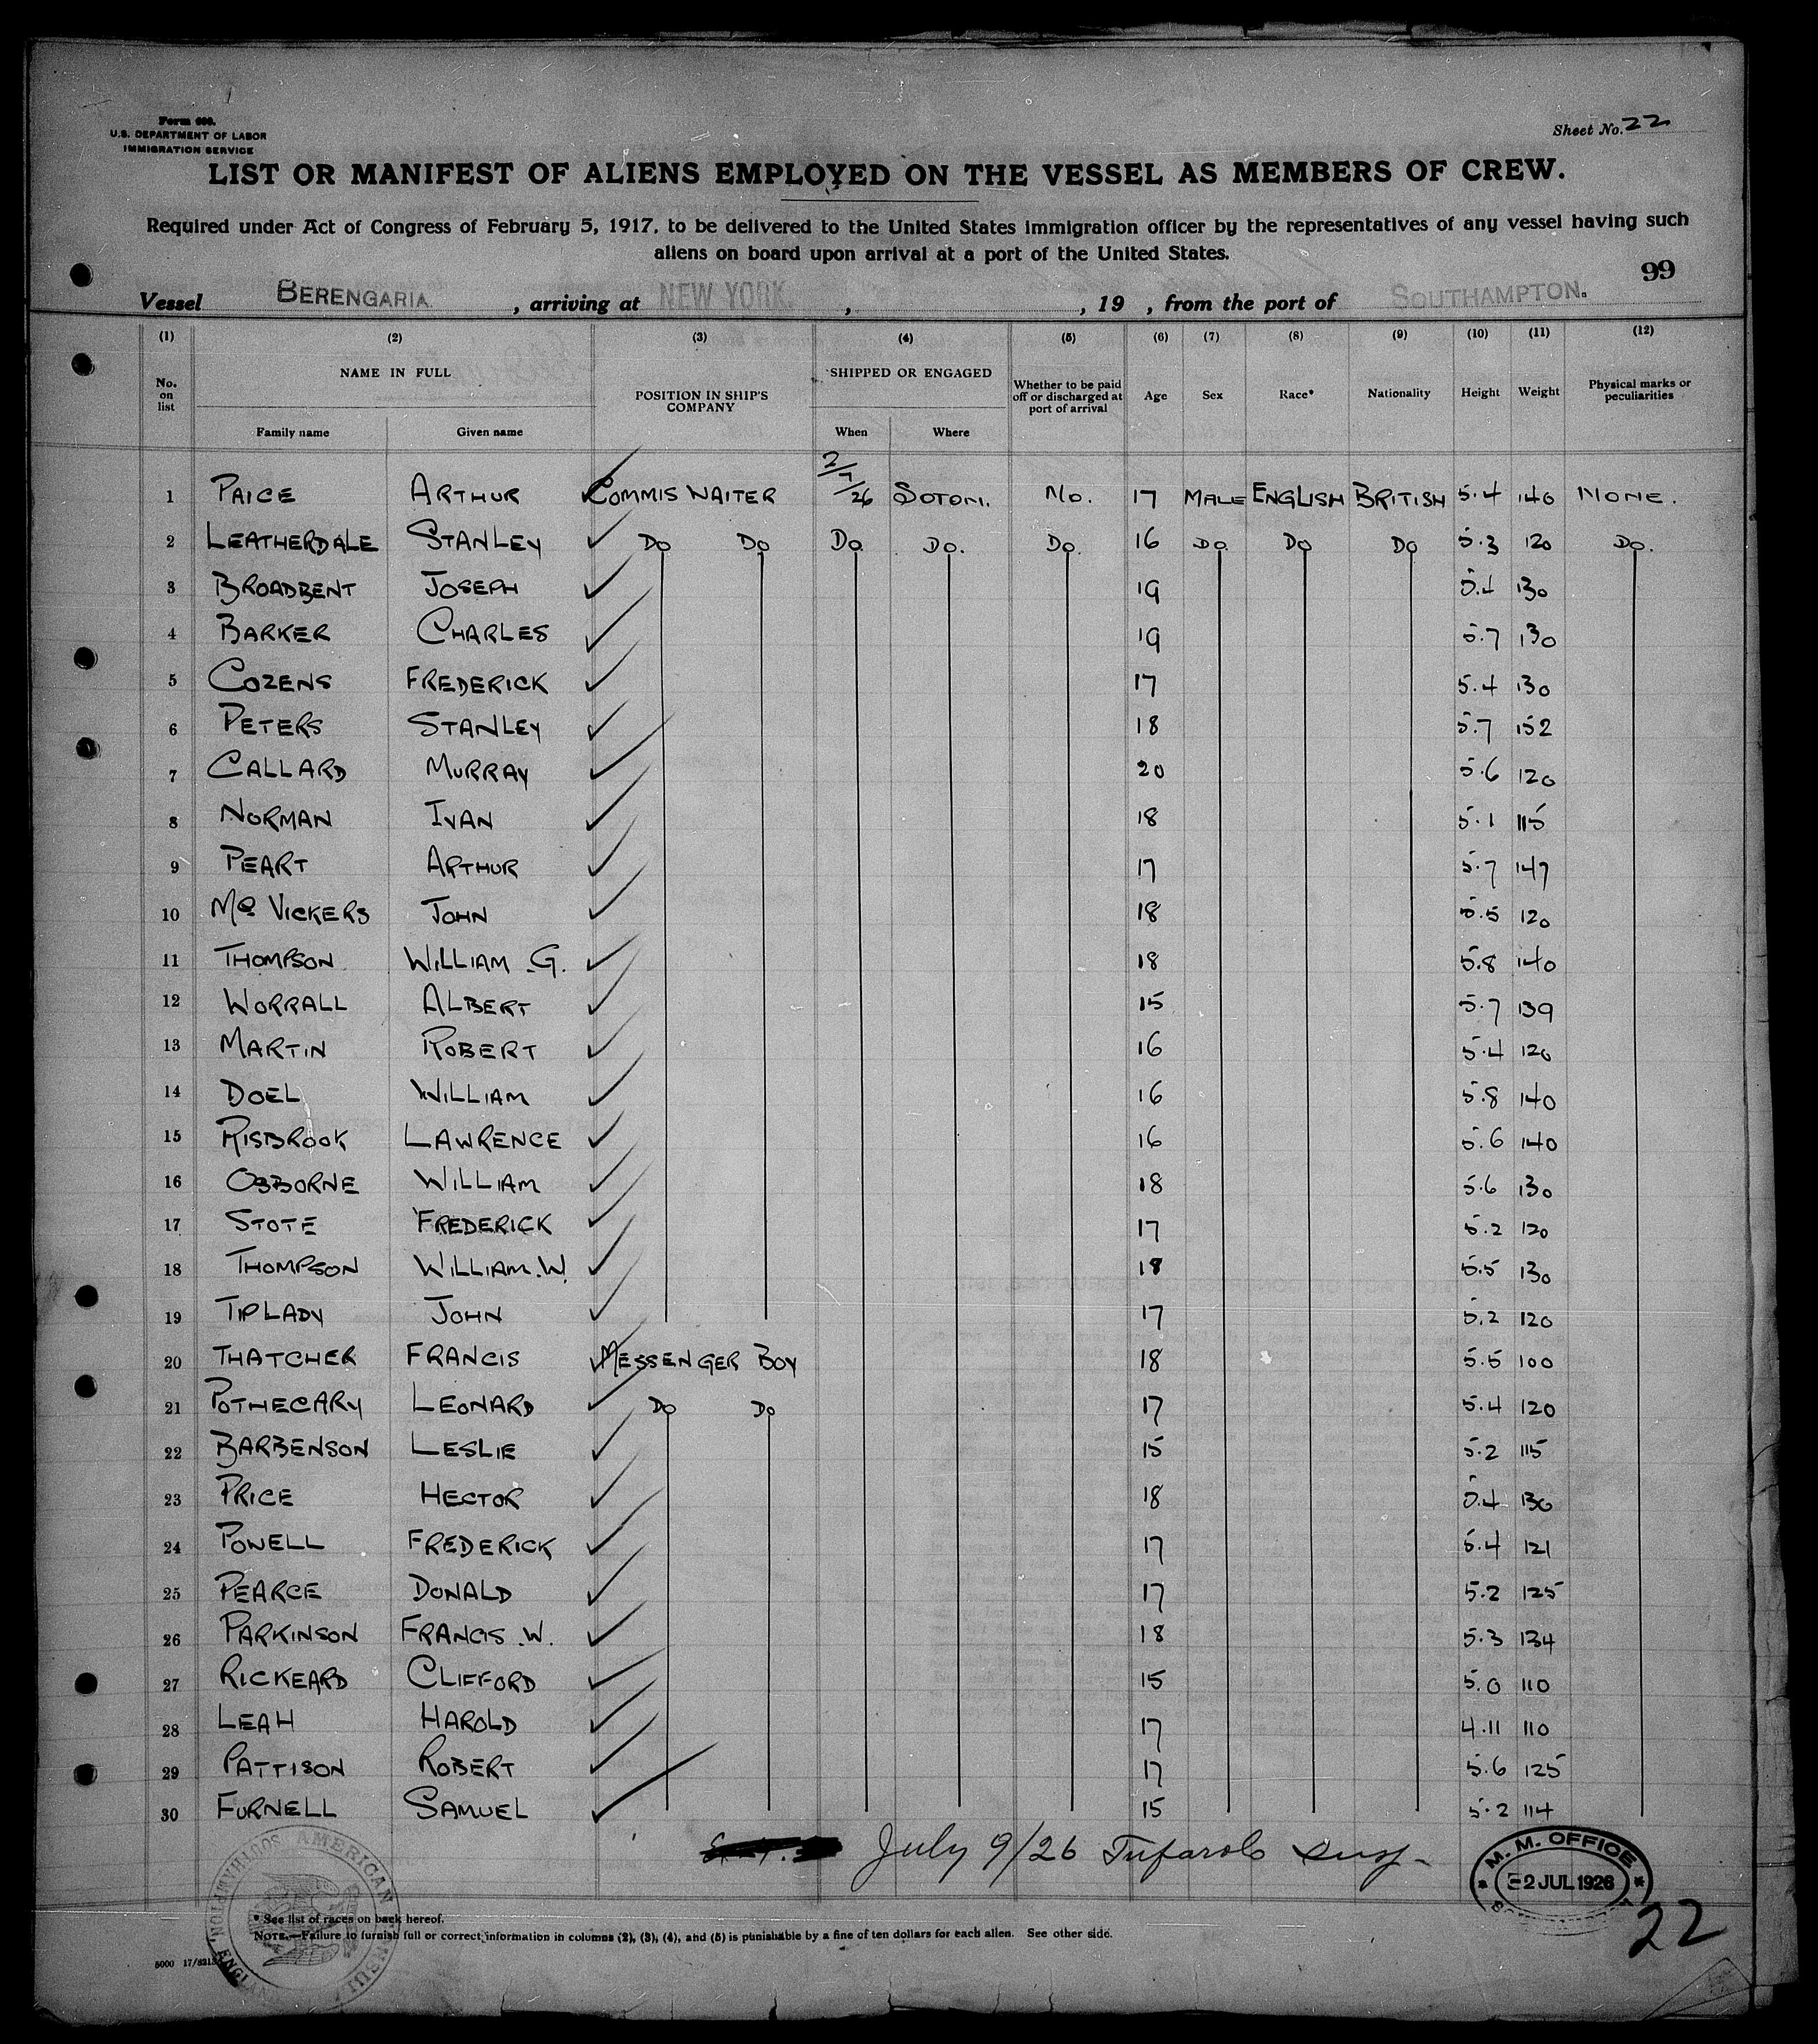 Form 680.
U.S. DEPARTMENT OF LABOR
IMMIGRATION SERVICE
Sheet No. 22
LIST OR MANIFEST OF ALIENS EMPLOYED ON THE VESSEL AS MEMBERS OF CREW.
Required under Act of Congress of February 5, 1917, to be delivered to the United States immigration officer by the representatives of any vessel having such
aliens on board upon arrival at a port of the United States.
99
Vessel BERENGARIA. , arriving at NEW YORK. , , 19 , from the port of SOUTHAMPTON.
(1) (2) (3) (4) (5) (6) (7) (8) (9) (10) (11) (12)
No. on list NAME IN FULL Family name Given name POSITION IN SHIP'S COMPANY SHIPPED OR ENGAGED When Where Whether to be paid off or discharged at port of arrival Age Sex Race* Nationality Height Weight Physical marks or peculiarities
1 PAICE ARTHUR COMMIS WAITER 2/7/26 SOTON. NO. 17 MALE ENGLISH BRITISH 5.4 140 NONE.
2 LEATHERDALE STANLEY DO DO DO DO. DO. 16 DO. DO DO 5.3 120 DO.
3 BROADBENT JOSEPH 19 5.4 130
4 BARKER CHARLES 19 5.7 130
5 COZENS FREDERICK 17 5.4 130
6 PETERS STANLEY 18 5.7 152
7 CALLARD MURRAY 20 5.6 120
8 NORMAN IVAN 18 5.1 115
9 PEART ARTHUR 17 5.7 147
10 Mc VICKERS JOHN 18 5.5 120
11 THOMPSON WILLIAM .G. 18 5.8 140
12 WORRALL ALBERT 15 5.7 139
13 MARTIN ROBERT 16 5.4 120
14 DOEL WILLIAM 16 5.8 140
15 RISBROOK LAWRENCE 16 5.6 140
16 OSBORNE WILLIAM 18 5.6 130
17 STOTE FREDERICK 17 5.2 120
18 THOMPSON WILLIAM.W. 18 5.5 130
19 TIPLADY JOHN 17 5.2 120
20 THATCHER FRANCIS MESSENGER BOY 18 5.5 100
21 POTHECARY LEONARD DO DO 17 5.4 120
22 BARBENSON LESLIE 15 5.2 115
23 PRICE HECTOR 18 5.4 130
24 POWELL FREDERICK 17 5.4 121
25 PEARCE DONALD 17 5.2 125
26 PARKINSON FRANCIS .W. 18 5.3 134
27 RICKEARD CLIFFORD 15 5.0 110
28 LEAH HAROLD 17 4.11 110
29 PATTISON ROBERT 17 5.6 125
30 FURNELL SAMUEL 15 5.2 114
July 9/26 Tufarolo Insp.
M. M. OFFICE
2 JUL 1926
AMERICAN
SOUTHAMPTON, ENGLAND
22
* See list of races on back hereof.
NOTE.—Failure to furnish full or correct information in columns (2), (3), (4), and (5) is punishable by a fine of ten dollars for each alien. See other side.